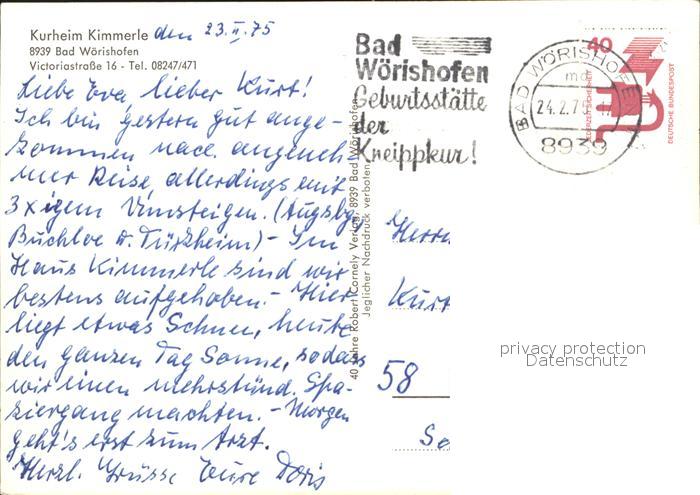 Kurheim Kimmerle den 23.II.75
8939 Bad Wörishofen
Victoriastraße 16 - Tel. 08247/471
Liebe Eva, lieber Kurt!
Ich bin gestern gut ange-
kommen nach angeneh-
mer Reise, allerdings mit
3 x igem Umsteigen. (Augsbg.
Buchloe u. Türkheim) - Im
Haus Kimmerle sind wir
bestens aufgehoben. - Hier
liegt etwas Schnee, heute
den ganzen Tag Sonne, sodass
wir einen mehrstünd. Spa-
ziergang machten. - Morgen
geht's erst zum Arzt.
Herzl. Grüsse Eure Doris
40 Jahre Robert Cornely Verlag, 8939 Bad Wörishofen
Jeglicher Nachdruck verboten
Bad
Wörishofen
Geburtsstätte
der
Kneippkur!
BAD WÖRISHOFEN
md
24.2.75
8939
40
JEDERZEIT SICHERHEIT
DEUTSCHE BUNDESPOST
Herrn
Kurt
58
So
privacy protection
Datenschutz